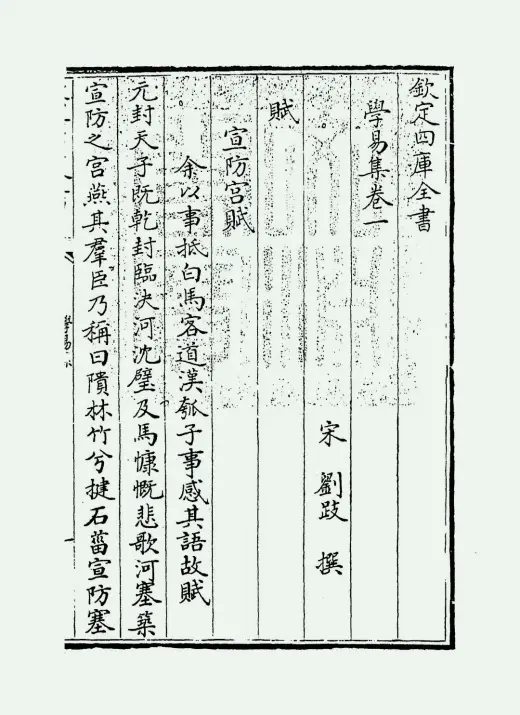 欽定四庫全書
學易集卷一
宋 劉跂 撰
賦
宣防宮賦
余以事抵白馬客道漢瓠子事感其語故賦
元封天子既乾封臨決河沈璧及馬慷慨悲歌河塞築
宣防之宮燕其羣臣乃稱曰隤林竹兮揵石菑宣防塞